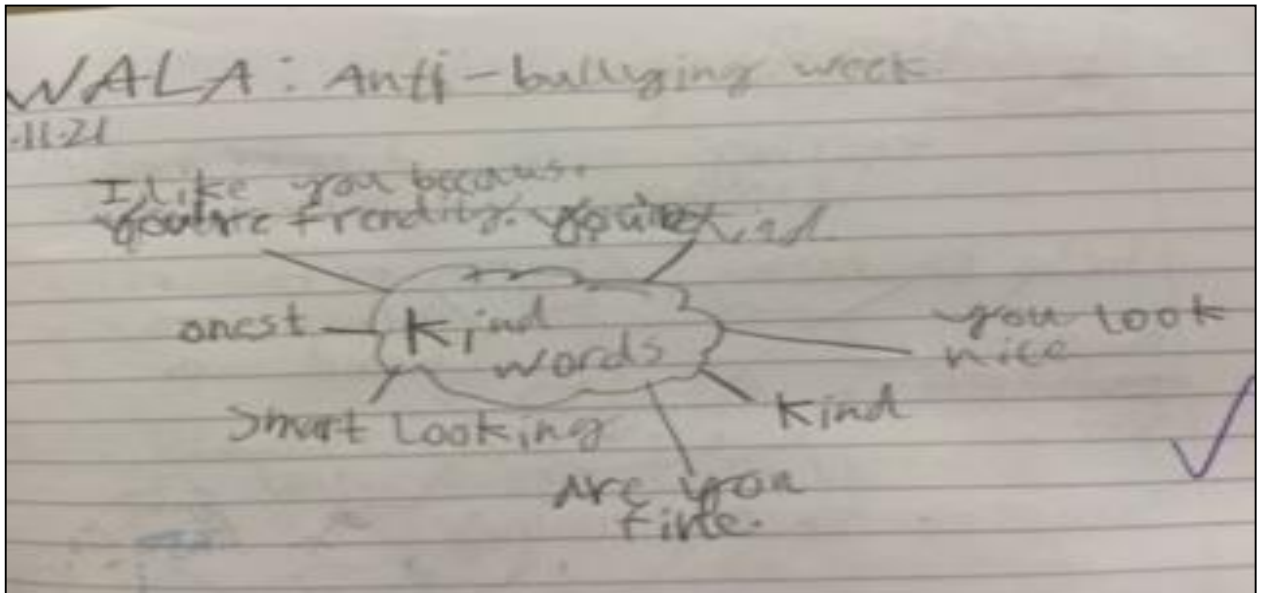 WALA: Anti-bullying week.
-11-21
I like you becaus.
you're frendity. you're kind.
onest
Kind
words
you look
nice
Smart Looking
Kind
Are you
fine.